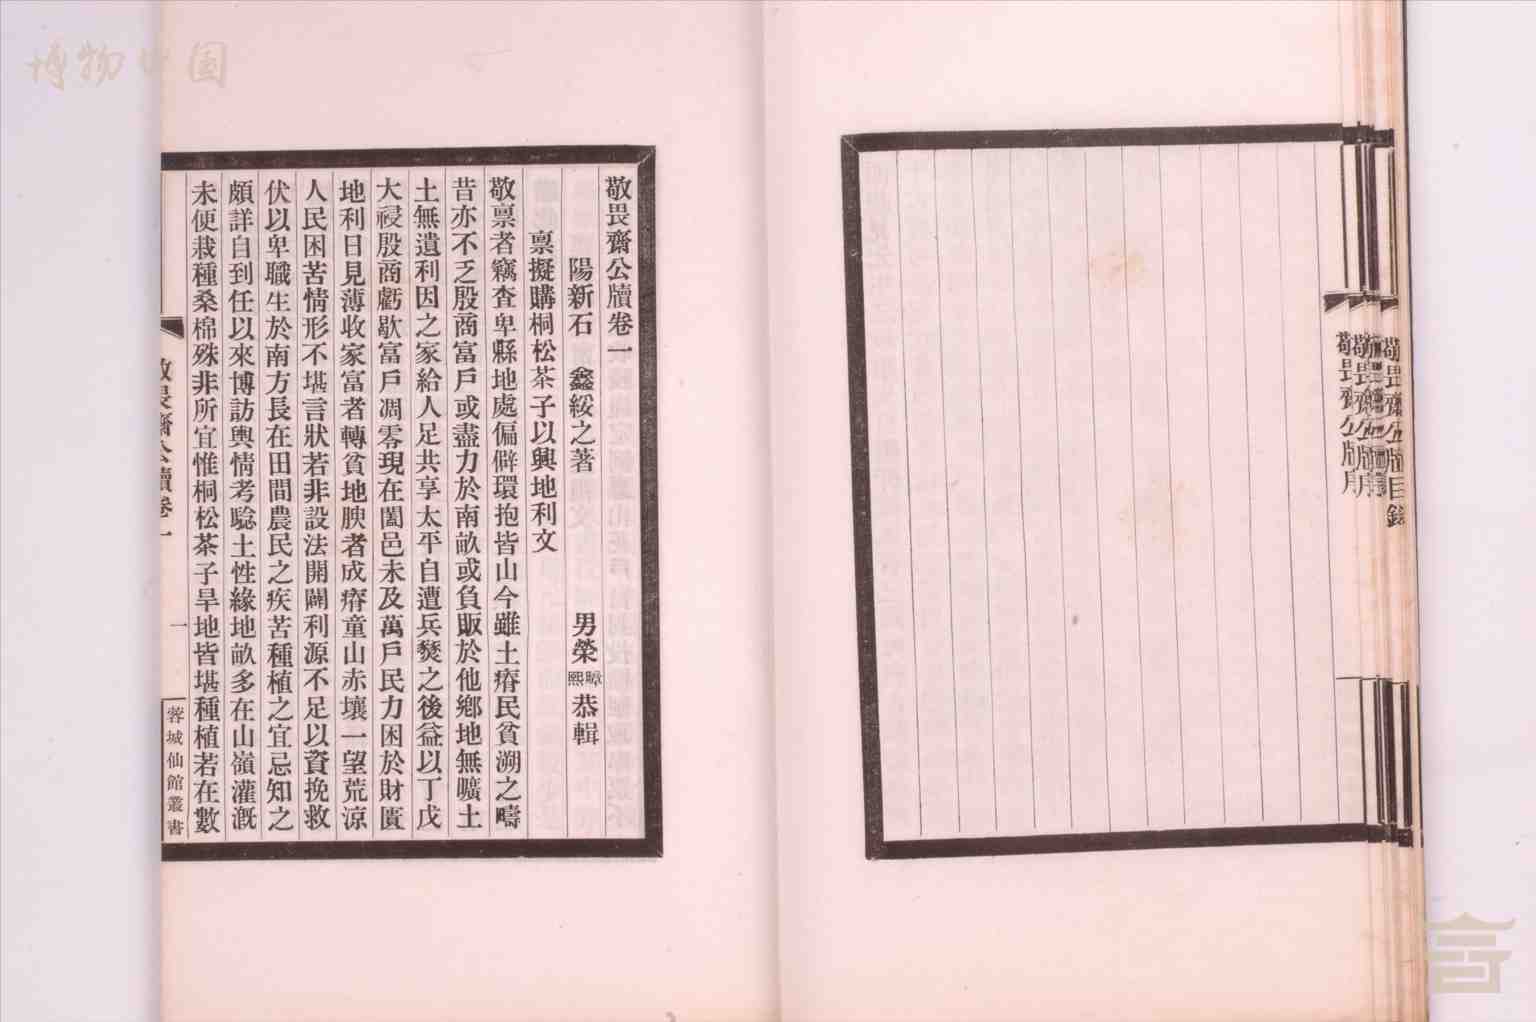 敬畏齋公牘目錄
敬畏齋公牘卷一
陽新石 鑫綏之著 男榮暲熙恭輯
禀擬購桐松茶子以興地利文
敬禀者竊查卑縣地處偏僻環抱皆山今雖土瘠民貧溯之疇
昔亦不乏殷商富戶或盡力於南畝或負販於他鄉地無曠土
土無遺利因之家給人足共享太平自遭兵燹之後益以丁戊
大祲殷商虧歇富戶凋零現在闔邑未及萬戶民力困於財匱
地利日見薄收家富者轉貧地腴者成瘠童山赤壤一望荒涼
人民困苦情形不堪言狀若非設法開闢利源不足以資挽救
伏以卑職生於南方長在田間農民之疾苦種植之宜忌知之
頗詳自到任以來博訪輿情考驗土性緣地畝多在山嶺灌溉
未便栽種桑棉殊非所宜惟桐松茶子旱地皆堪種植若在數
敬畏齋公牘卷一
一
蓉城仙館叢書
博物中国